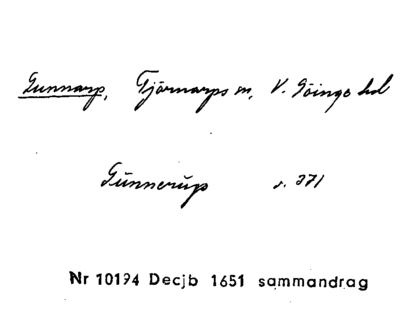 Gunnarp, Tjörnarps sn, V. Göinge hd
Gunnerŭp s. 371
Nr 10194 Decjb 1651 sammandrag